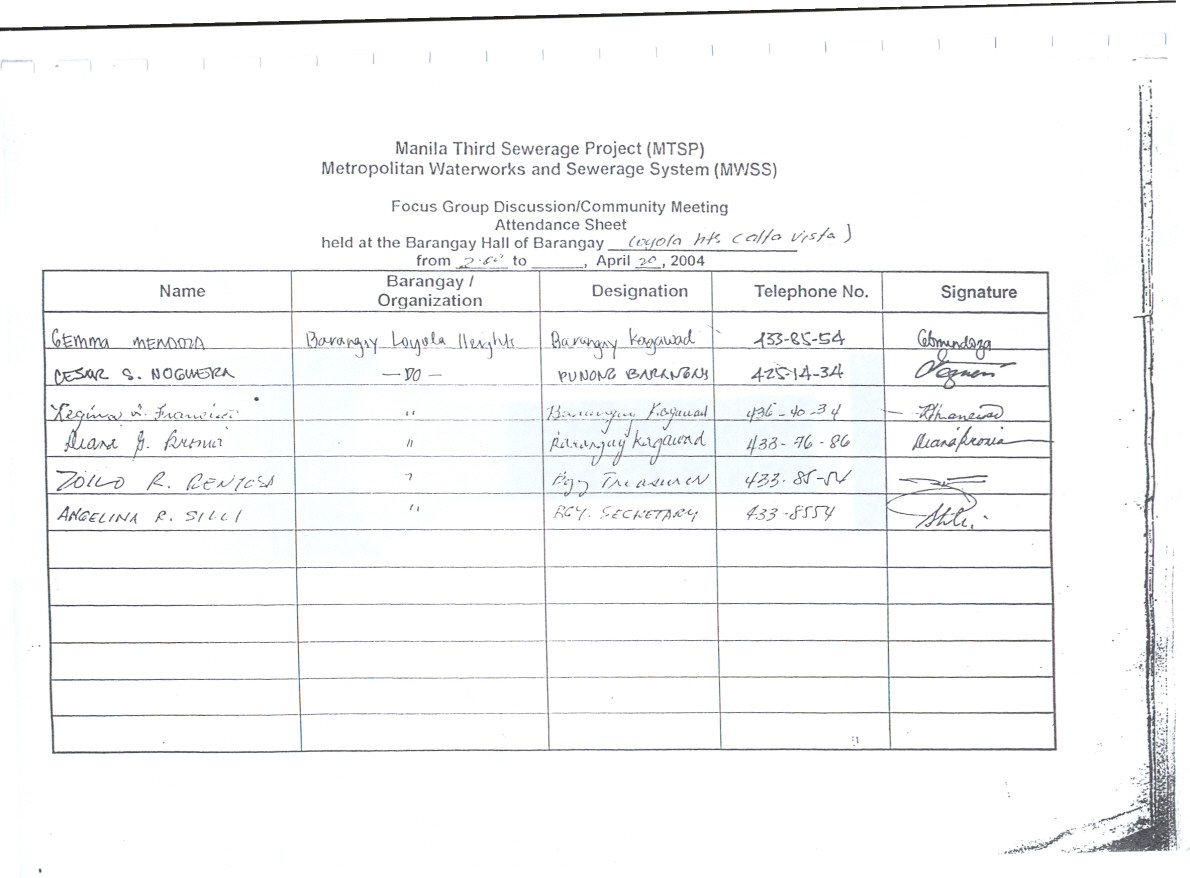 Manila Third Sewerage Project (MTSP)
Metropolitan Waterworks and Sewerage System (MWSS)
Focus Group Discussion/Community Meeting
Attendance Sheet
held at the Barangay Hall of Barangay Loyola hts (alta vista)
from to , April 20, 2004
Name Barangay / Organization Designation Telephone No. Signature
GEMMA MENDOZA Barangay Loyola Heights Barangay Kagawad 433-85-54 Gbmendoza
CESAR S. NOGUERA — DO — PUNONG BARANGAY 425-14-34
Regina Francisco " Barangay Kagawad 436-40-34
Diana G. " Barangay Kagawad 433-76-86
ZOILO R. " Bgy Treasurer 433-85-54
ANGELINA R. SILLI " BGY. SECRETARY 433-8554